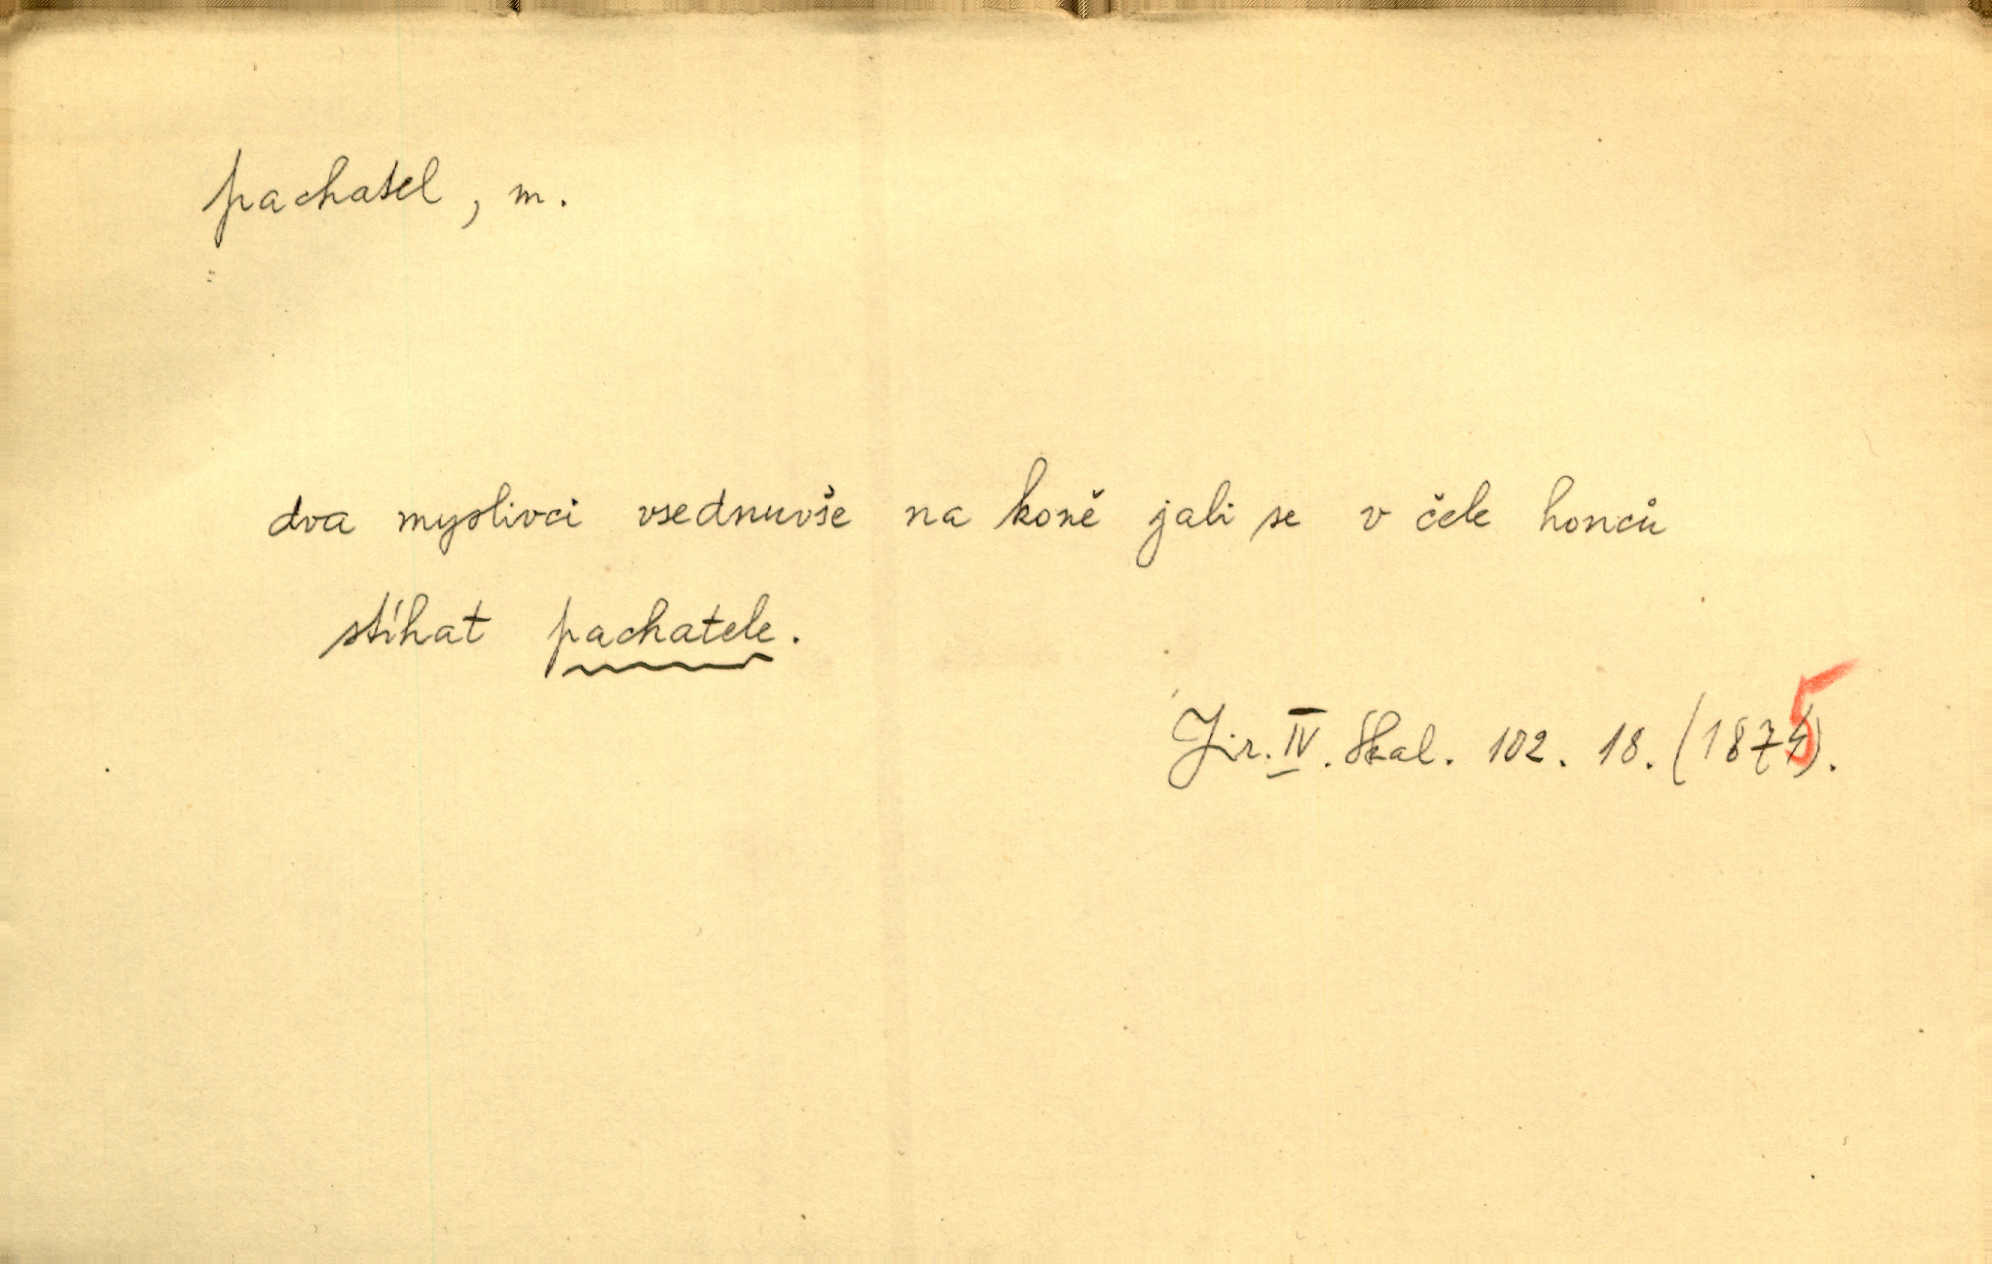 pachatel, m.
dva myslivci vsednuvše na koně jali se v čele honců
stíhat pachatele.
Jir. IV. Skal. 102. 18. (1875).